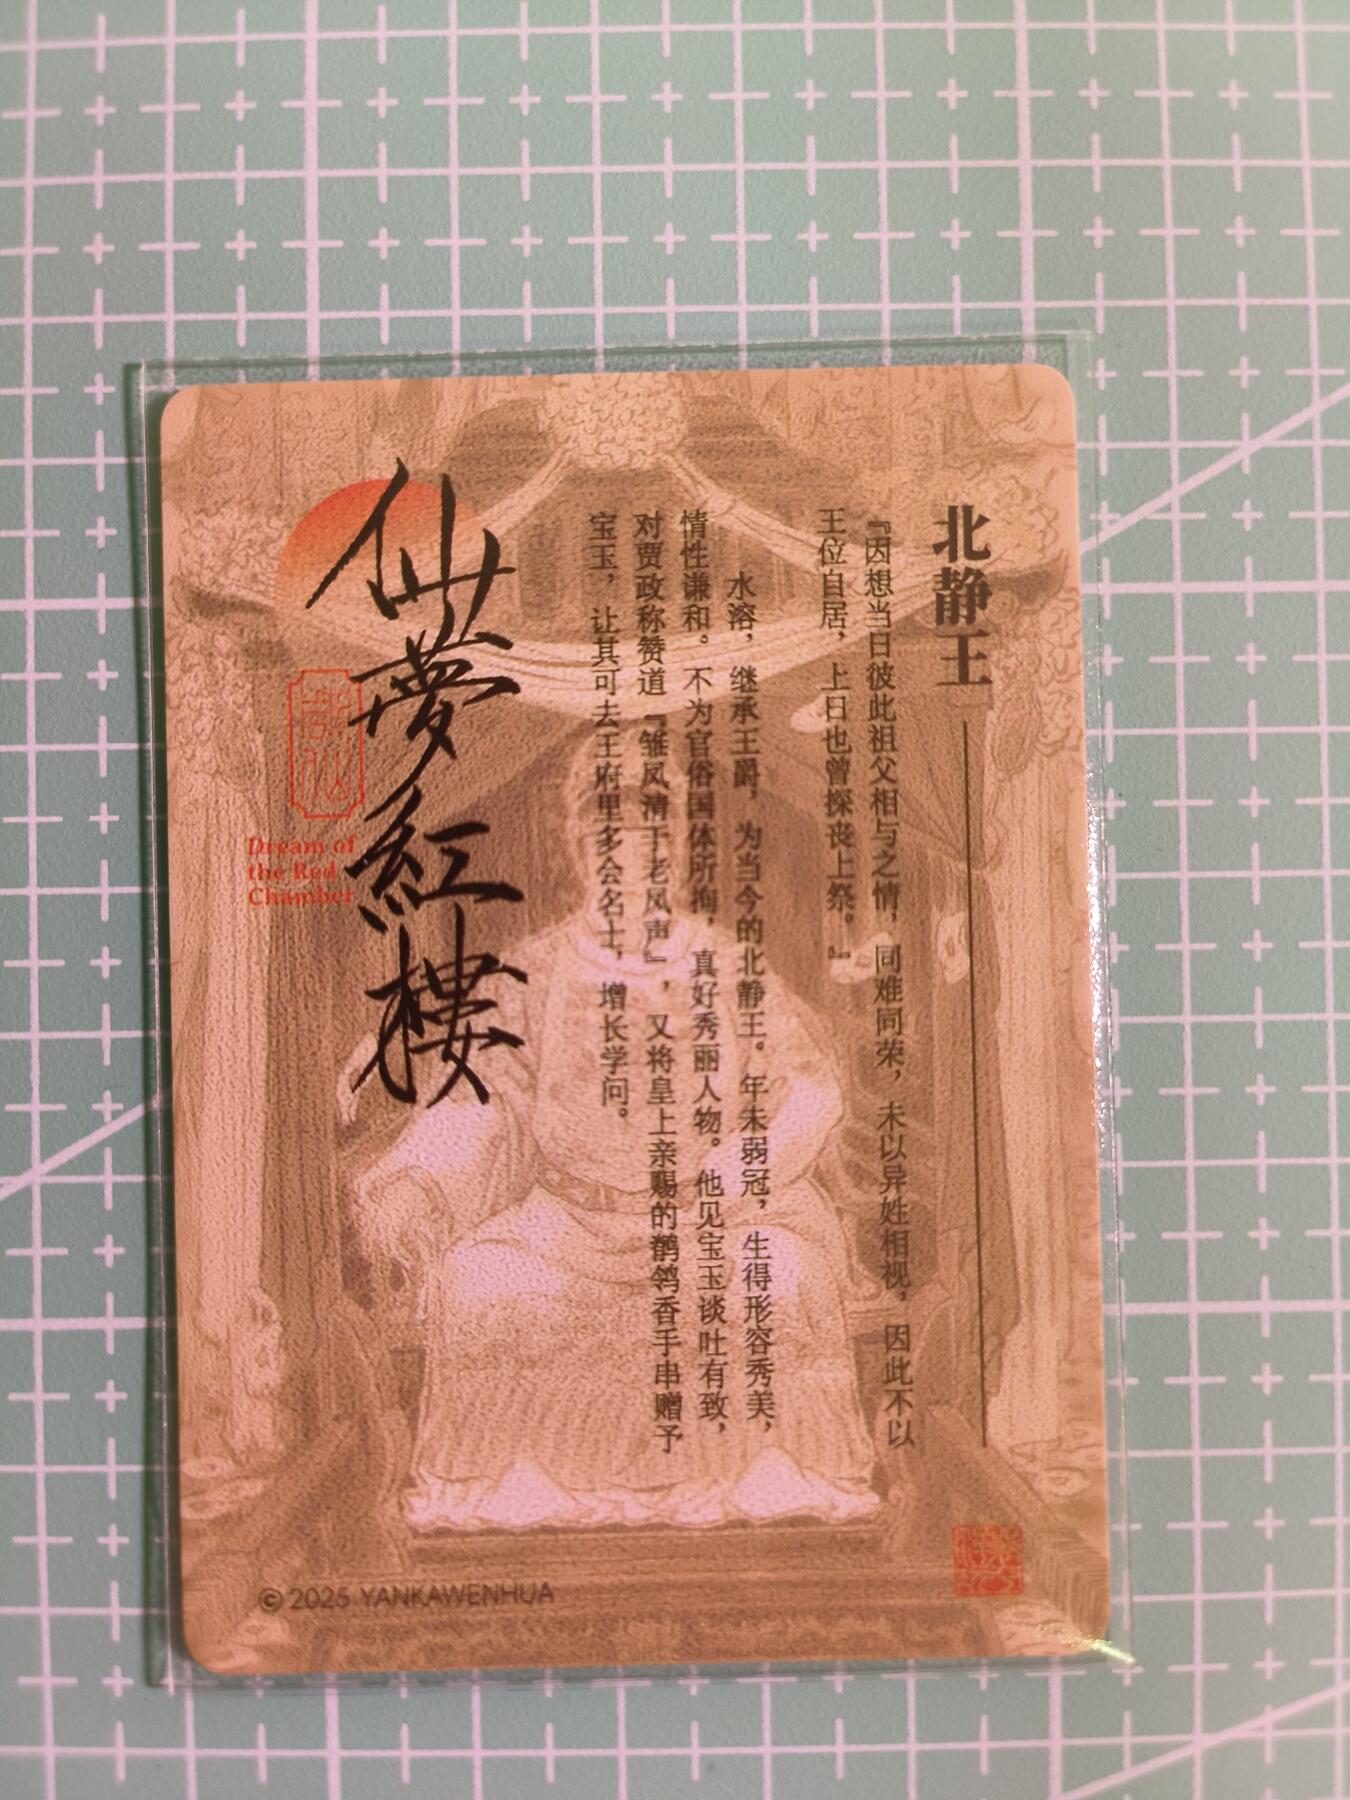 北静王
『因想当日彼此祖父相与之情，同难同荣，未以异姓相视，因此不以
王位自居，上日也曾探丧上祭。』
水溶，继承王爵，为当今的北静王。年未弱冠，生得形容秀美，
情性谦和。不为官俗国体所拘，真好秀丽人物。他见宝玉谈吐有致，
对贾政称赞道『雏凤清于老凤声』，又将皇上亲赐的鹡鸰香手串赠予
宝玉，让其可去王府里多会名士，增长学问。
仙夢紅樓
Dream of
the Red
Chamber
© 2025 YANKAWENHUA